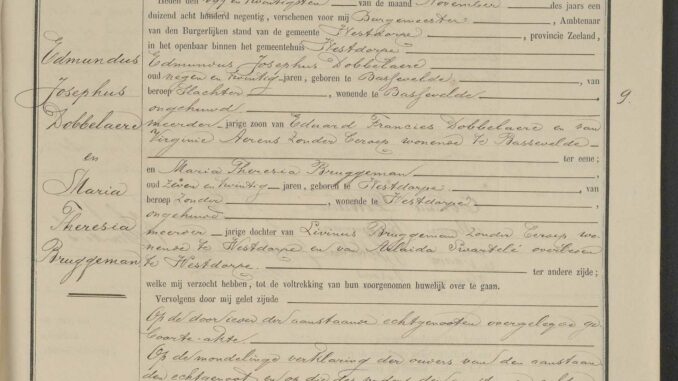 Heden den vijf en twintigsten van de maand November des jaars een
duizend acht honderd negentig, verschenen voor mij Burgemeester, Ambtenaar
van den Burgerlijken stand van de gemeente Westdorpe, provincie Zeeland,
in het openbaar binnen het gemeentehuis Westdorpe
Edmundus Josephus Dobbelaere
oud negen en twintig jaren, geboren te Bassevelde, van
beroep Slachter, wonende te Bassevelde
ongehuwd
meerder-jarige zoon van Eduard Francies Dobbelaere en van
Virginie Aerens zonder beroep wonende te Bassevelde
ter eene;
en Maria Theresia Bruggeman
oud zeven en twintig jaren, geboren te Westdorpe, van
beroep zonder, wonende te Westdorpe
ongehuwd
meerder-jarige dochter van Livinus Bruggeman zonder beroep wo-
nende te Westdorpe en van Adlaida Swartelé overleden
te Westdorpe.
ter andere zijde;
welke mij verzocht hebben, tot de voltrekking van hun voorgenomen huwelijk over te gaan.
Vervolgens door mij gelet zijnde
Op de door ieder der aanstaande echtgenooten overgelegde ge-
boorte akte.
Op de mondelinge verklaring der ouders van den aanstaan-
den echtgenoot en op die des vaders der
Edmundus
Josephus
Dobbelaere
en
Maria
Theresia
Bruggeman
9.